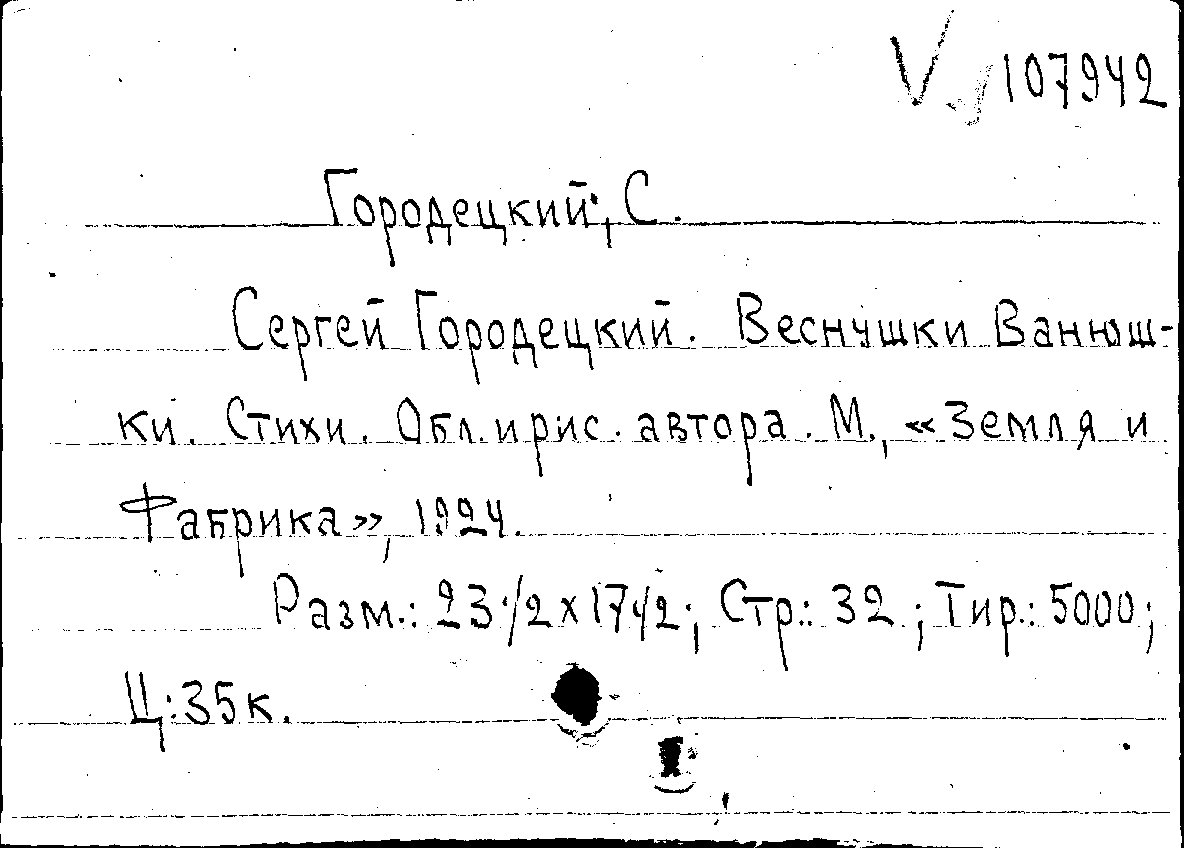 V. 107942
Городецкий, С.
Сергей Городецкий. Веснушки Ванюш-
ки. Стихи. Обл. и рис. автора. М., «Земля и
Фабрика», 1924.
Разм.: 23 1/2 x 17 1/2; Стр.: 32; Тир.: 5000;
Ц: 35 к.